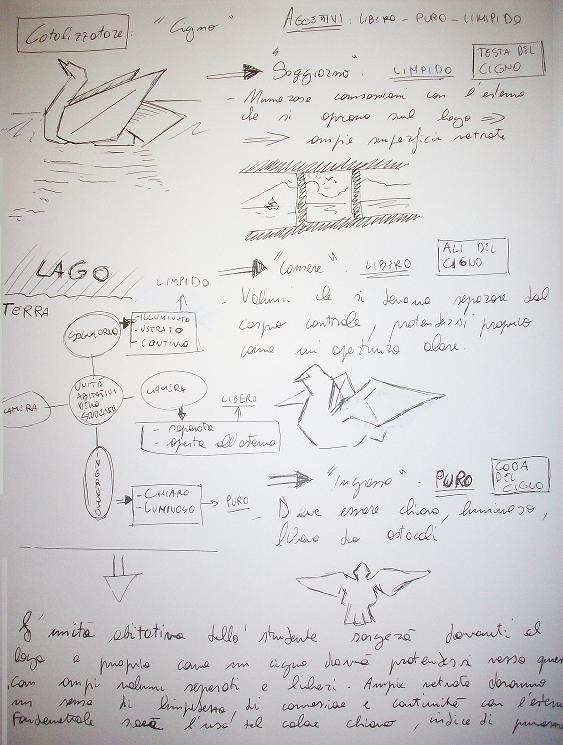 Catalizzatore: "Cigno"
AGGETTIVI: LIBERO - PURO - LIMPIDO
"Soggiorno": LIMPIDO
TESTA DEL
CIGNO
- Numerose connessioni con l'esterno
che si aprono sul lago ⇒
⇒ ampie superfici vetrate
LAGO
TERRA
LIMPIDO
"Camere": LIBERO
ALI DEL
CIGNO
- Volumi che si devono separare dal
corpo centrale, protendersi proprio
come un'apertura alare.
SOGGIORNO
- ILLUMINATO
- VETRATO
- CONTINUO
UNITÀ
ABITATIVA
DELLO
STUDENTE
CAMERA
CAMERA
LIBERO
- separata
- aperta all'esterno
INGRESSO
- CHIARO
- LUMINOSO
PURO
"Ingresso": PURO
CODA
DEL
CIGNO
- Deve essere chiaro, luminoso,
libero da ostacoli
L'unità abitativa dello studente sorgerà davanti al
lago e proprio come un cigno dovrà protendersi verso
con ampi volumi separati e liberi. Ampie vetrate daranno
un senso di limpidezza, di connessione e continuità con
Fondamentale sarà l'uso del colore chiaro, indice di